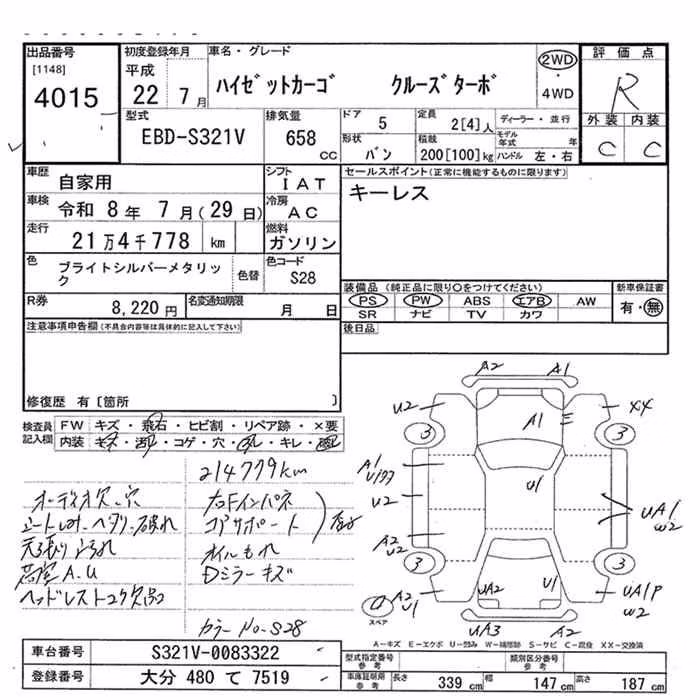 出品番号
[1148]
4015
初度登録年月
平成
22 7月
車名・グレード
ハイゼットカーゴ クルーズターボ
2WD
・
4WD
評価点
R
外装 内装
C C
型式
EBD-S321V
排気量
658
cc
ドア 5
定員 2[4]人
ディーラー・並行
形状 バン
積載 200[100]kg
モデル年式 年
ハンドル 左・右
車歴
自家用
シフト
IAT
車検
令和 8年 7月(29日)
冷房
AC
走行
21万4千778 km
燃料
ガソリン
色
ブライトシルバーメタリック
色替
色コード
S28
R券
8,220円
名変通知期限
月 日
セールスポイント(正常に機能するものに限ります)
キーレス
装備品 (純正品に限り○をつけてください)
新車保証書
PS PW ABS エアB AW
有・無
SR ナビ TV カワ
後日品
注意事項申告欄(不具合内容等は具体的に記入して下さい)
修復歴 有〔箇所 〕
検査員記入欄
FW キズ・飛石・ヒビ割・リペア跡・×要
内装 キズ・汚れ・コゲ・穴・
・キレ・
214779km
オーディオ欠、穴
シートしみ、ヘタリ、破れ
天張りよごれ
荷室A.U
ヘッドレスト2ケ欠品
右Fインパネ
コアサポート
オイルもれ
Dミラーキズ
カラーNo-S28
A2 A1
U2
XX
A1
3 3
A1
U1
U2
UA1
W2
A2
U2
3 3
A2
U1
UA2
U1
UA1P
W2
スペア
UA3 A2
A-キズ E-エクボ U-凹み W-補修跡 S-サビ C-腐食 XX-交換済
車台番号
S321V-0083322
登録番号
大分 480 て 7519
型式指定番号
参考
類別区分番号
参考
車庫証明用
参考
長さ 339cm 幅 147cm 高さ 187cm